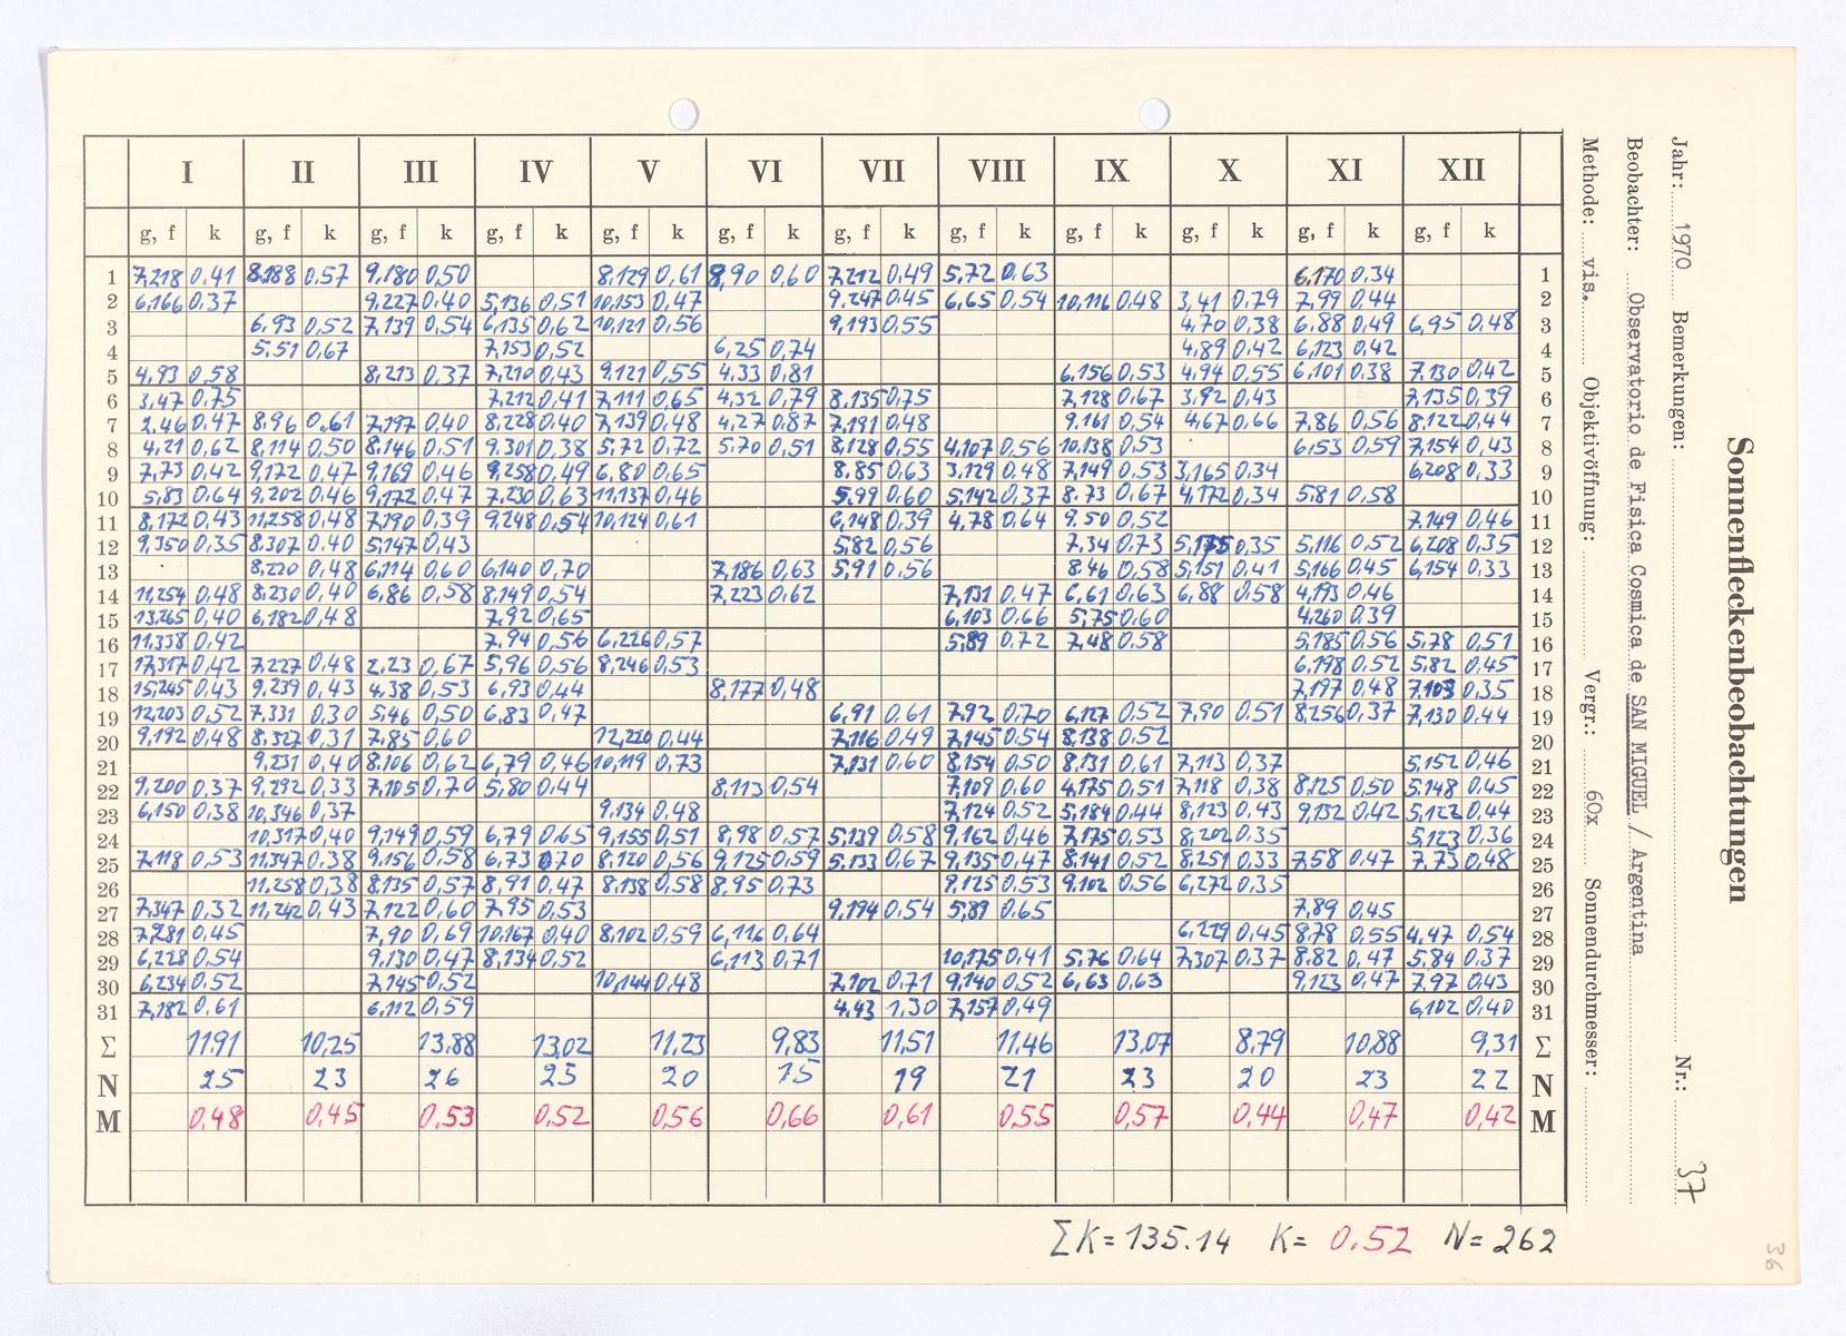 Sonnenfleckenbeobachtungen
Jahr: 1970 Bemerkungen: Nr.: 37
Beobachter: Observatorio de Fisica Cosmica de SAN MIGUEL / Argentina
Methode: vis. Objektivöffnung: Vergr.: 60x Sonnendurchmesser:
I II III IV V VI VII VIII IX X XI XII
g, f k g, f k g, f k g, f k g, f k g, f k g, f k g, f k g, f k g, f k g, f k g, f k
1 7,218 0,41 8,188 0,57 9,180 0,50 8,129 0,61 8,90 0,60 7,212 0,49 5,72 0,63 6,170 0,34 1
2 6,166 0,37 9,227 0,40 5,136 0,51 10,153 0,47 9,247 0,45 6,65 0,54 10,116 0,48 3,41 0,79 7,99 0,44 2
3 6,93 0,52 7,139 0,54 6,135 0,62 10,121 0,56 9,193 0,55 4,70 0,38 6,88 0,49 6,95 0,48 3
4 5,51 0,67 7,153 0,52 6,25 0,74 4,89 0,42 6,123 0,42 4
5 4,93 0,58 8,213 0,37 7,210 0,43 9,121 0,55 4,33 0,81 6,156 0,53 4,94 0,55 6,101 0,38 7,130 0,42 5
6 3,47 0,75 7,212 0,41 7,111 0,65 4,32 0,79 8,135 0,75 7,128 0,67 3,92 0,43 7,135 0,39 6
7 2,46 0,47 8,96 0,61 7,197 0,40 8,228 0,40 7,139 0,48 4,27 0,87 7,191 0,48 9,161 0,54 4,67 0,66 7,86 0,56 8,122 0,44 7
8 4,21 0,62 8,114 0,50 8,146 0,51 9,301 0,38 5,72 0,72 5,70 0,51 8,128 0,55 4,107 0,56 10,138 0,53 6,53 0,59 7,154 0,43 8
9 7,73 0,42 9,172 0,47 9,169 0,46 9,258 0,49 6,80 0,65 8,85 0,63 3,129 0,48 7,149 0,53 3,165 0,34 6,208 0,33 9
10 5,83 0,64 9,202 0,46 9,172 0,47 7,230 0,63 11,137 0,46 5,99 0,60 5,142 0,37 8,73 0,67 4,172 0,34 5,81 0,58 10
11 8,172 0,43 11,258 0,48 7,190 0,39 9,248 0,54 10,124 0,61 6,148 0,39 4,78 0,64 9,50 0,52 7,149 0,46 11
12 9,350 0,35 8,307 0,40 5,147 0,43 5,82 0,56 7,34 0,73 5,175 0,35 5,116 0,52 6,208 0,35 12
13 8,220 0,48 6,114 0,60 6,140 0,70 7,186 0,63 5,91 0,56 8,46 0,58 5,151 0,41 5,166 0,45 6,154 0,33 13
14 11,254 0,48 8,230 0,40 6,86 0,58 8,149 0,54 7,223 0,62 7,131 0,47 6,61 0,63 6,88 0,58 4,193 0,46 14
15 13,265 0,40 6,182 0,48 7,92 0,65 6,103 0,66 5,75 0,60 4,260 0,39 15
16 11,338 0,42 7,94 0,56 6,226 0,57 5,89 0,72 7,48 0,58 5,185 0,56 5,78 0,51 16
17 17,317 0,42 7,227 0,48 2,23 0,67 5,96 0,56 8,246 0,53 6,198 0,52 5,82 0,45 17
18 15,245 0,43 9,239 0,43 4,38 0,53 6,93 0,44 8,177 0,48 7,197 0,48 7,103 0,35 18
19 12,203 0,52 7,331 0,30 5,46 0,50 6,83 0,47 6,91 0,61 7,92 0,70 6,127 0,52 7,90 0,51 8,256 0,37 7,130 0,44 19
20 9,192 0,48 8,327 0,31 7,85 0,60 12,220 0,44 7,116 0,49 7,145 0,54 8,138 0,52 20
21 9,231 0,40 8,106 0,62 6,79 0,46 10,119 0,73 7,131 0,60 8,154 0,50 8,131 0,61 7,113 0,37 5,152 0,46 21
22 9,200 0,37 9,292 0,33 7,105 0,70 5,80 0,44 8,113 0,54 7,109 0,60 4,175 0,51 7,118 0,38 8,125 0,50 5,148 0,45 22
23 6,150 0,38 10,346 0,37 9,134 0,48 7,124 0,52 5,184 0,44 8,123 0,43 9,132 0,42 5,122 0,44 23
24 10,317 0,40 9,149 0,59 6,79 0,65 9,155 0,51 8,98 0,57 5,139 0,58 9,162 0,46 7,175 0,53 8,202 0,35 5,123 0,36 24
25 7,118 0,53 11,347 0,38 9,156 0,58 6,73 0,70 8,120 0,56 9,125 0,59 5,133 0,67 9,135 0,47 8,141 0,52 8,251 0,33 7,58 0,47 7,73 0,48 25
26 11,258 0,38 8,135 0,57 8,91 0,47 8,138 0,58 8,95 0,73 9,125 0,53 9,102 0,56 6,272 0,35 26
27 7,347 0,32 11,242 0,43 7,122 0,60 7,95 0,53 9,194 0,54 5,89 0,65 7,89 0,45 27
28 7,281 0,45 7,90 0,69 10,167 0,40 8,102 0,59 6,116 0,64 6,229 0,45 8,78 0,55 4,47 0,54 28
29 6,228 0,54 9,130 0,47 8,134 0,52 6,113 0,71 10,175 0,41 5,76 0,64 7,307 0,37 8,82 0,47 5,84 0,37 29
30 6,234 0,52 7,145 0,52 10,144 0,48 7,102 0,71 9,140 0,52 6,63 0,63 9,123 0,47 7,97 0,43 30
31 7,182 0,61 6,112 0,59 4,43 1,30 7,157 0,49 6,102 0,40 31
Σ 11,91 10,25 13,88 13,02 11,23 9,83 11,51 11,46 13,07 8,79 10,88 9,31 Σ
N 25 23 26 25 20 15 19 21 23 20 23 22 N
M 0,48 0,45 0,53 0,52 0,56 0,66 0,61 0,55 0,57 0,44 0,47 0,42 M
ΣK = 135.14 K = 0.52 N = 262
36